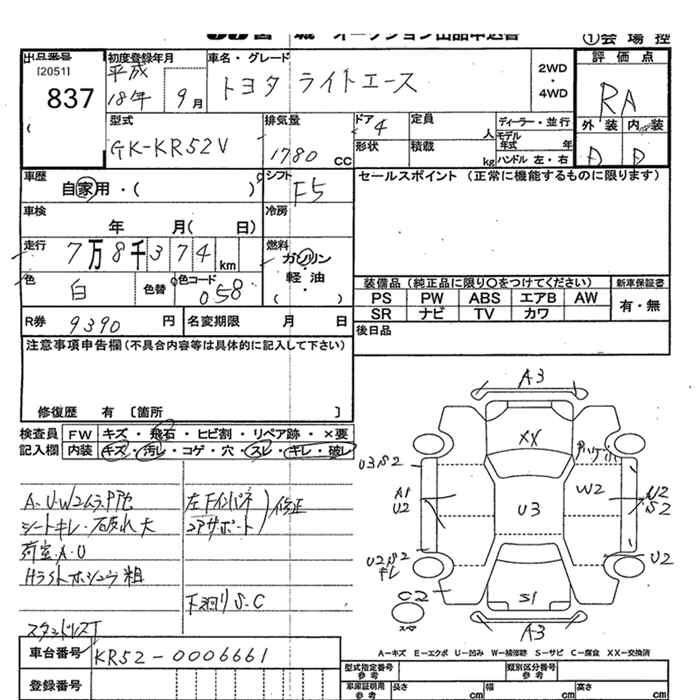 オークション出品申込書
①会場控
出品番号
[2051]
837
初度登録年月
平成
18年 9月
車名・グレード
トヨタ ライトエース
2WD
・
4WD
評価点
RA
外装 内装
D D
型式
GK-KR52V
排気量
1780 CC
ドア
4
形状
定員
人
積載
kg
ディーラー・並行
モデル
年式 年
ハンドル 左・右
車歴
自家用・( )
シフト
F5
セールスポイント (正常に機能するものに限ります)
車検
年 月( 日)
冷房
走行
7万8千374km
燃料
ガソリン
軽油
( )
色
白
色替
色コード
058
装備品 (純正品に限り○をつけてください)
新車保証書
PS PW ABS エアB AW
有・無
SR ナビ TV カワ
R券 9390円
名変期限 月 日
後日品
注意事項申告欄 (不具合内容等は具体的に記入して下さい)
修復歴 有 〔箇所 〕
検査員
記入欄
FW キズ・飛石・ヒビ割・リペア跡・×要
内装 キズ・汚レ・コゲ・穴・スレ・キレ・破レ
シートキレ・破れ大
荷室.A.U
左Fインパネ
コアサポート
修正
F廻り S.C
A3
XX
U3S2
A1
U2
U3
W2
U2
S2
U2S2
キレ
U2
C2
S1
スペア
A3
A-キズ E-エクボ U-凹み W-補修跡 S-サビ C-腐食 XX-交換済
車台番号
KR52-0006661
登録番号
型式指定番号
参考
類別区分番号
参考
車庫証明用
参考
長さ cm
幅 cm
高さ cm